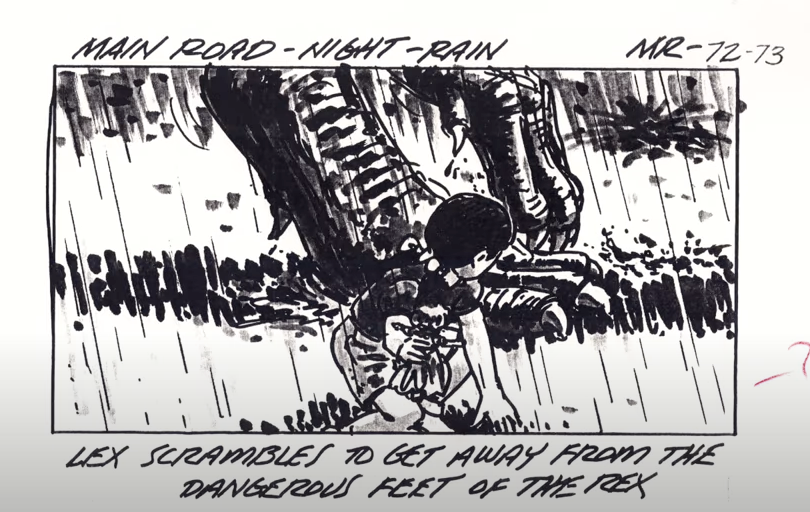 MAIN ROAD-NIGHT-RAIN MR-72-73
LEX SCRAMBLES TO GET AWAY FROM THE
DANGEROUS FEET OF THE REX